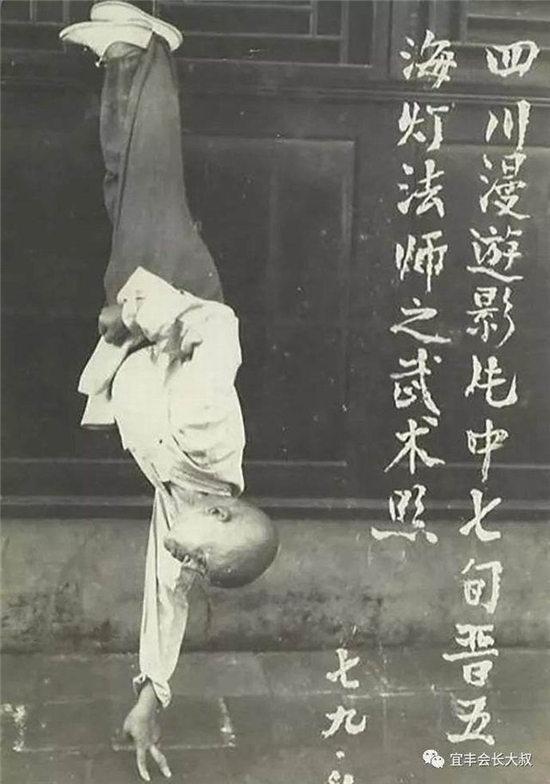 四川漫遊影片中七旬晋五
海灯法师之武术照
七九.
宜丰会长大叔